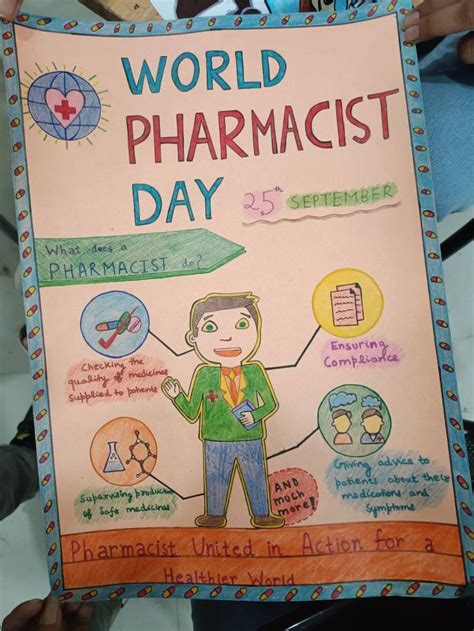 WORLD
PHARMACIST
DAY
25th SEPTEMBER
What does a
PHARMACIST do?
Checking the
quality of medicines
supplied to patients
Ensuring
Compliance
Supervising production
of Safe medicines
AND
much
more!
Giving advice to
patients about their
medications and
Symptoms
Pharmacist United in Action for a
Healthier World